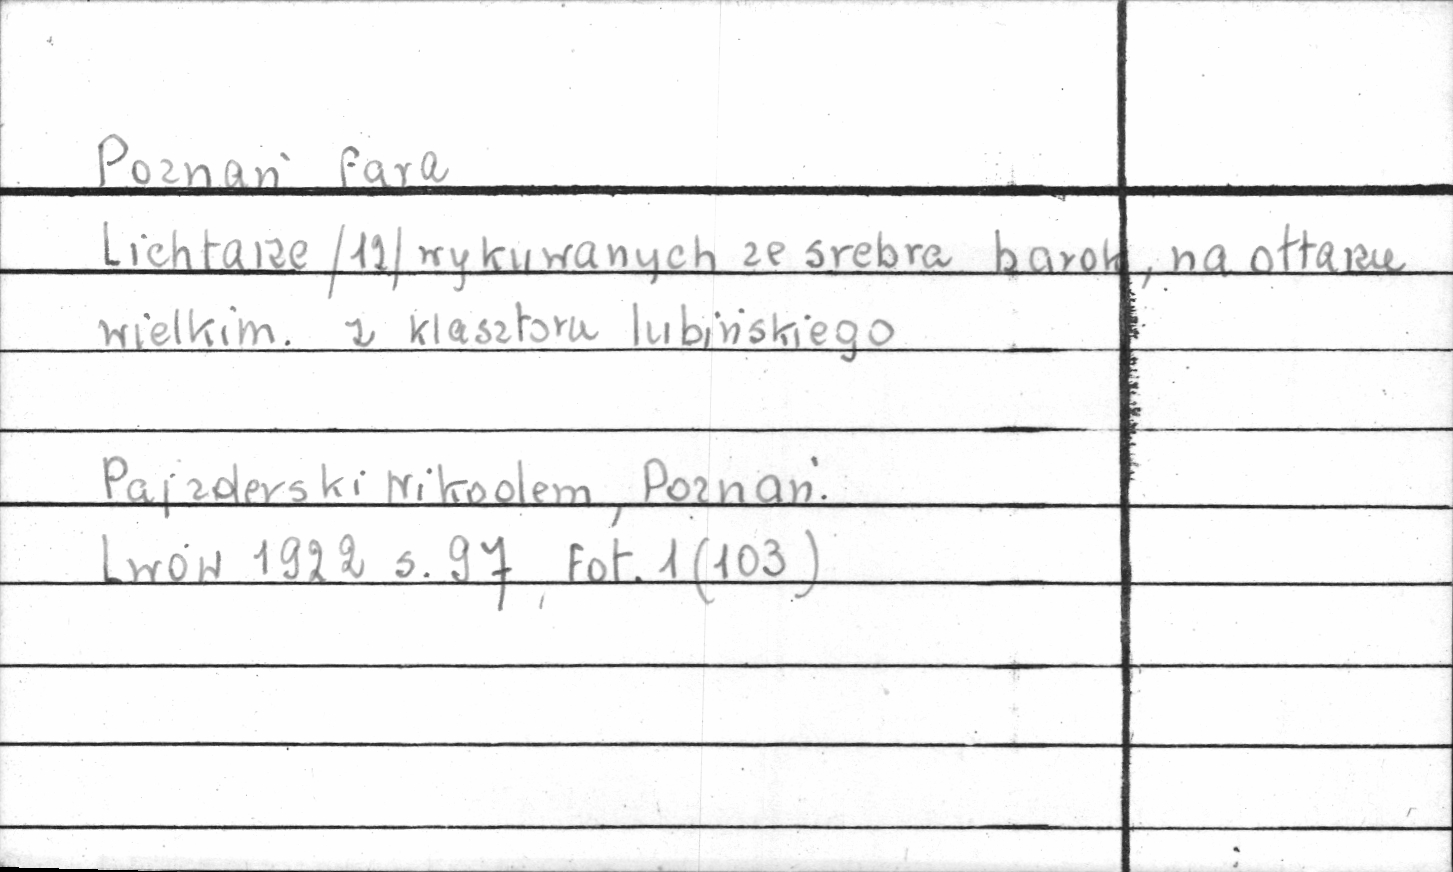 Poznań fara
Lichtarze /12/ wykuwanych ze srebra barok, na ołtarzu
wielkim. z klasztoru lubińskiego
Pajzderski Nikodem, Poznań.
Lwów 1922 s. 97, Fot. 1 (103)